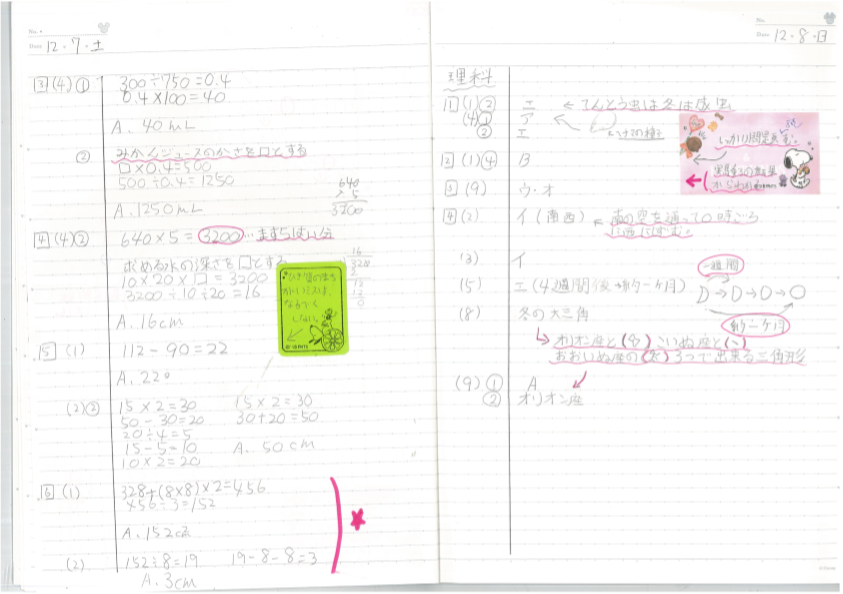 No.
Date 12・7・土
3 (4) ① 300÷750=0.4
0.4×100=40
A. 40mL
② みかんジュースのかさを口とする
口×0.4=500
500÷0.4=1250
A. 1250mL
640
× 5
3200
4 (4) ② 640×5=3200…
求める水の深さを口とする
10×20×口=3200
3200÷10÷20=16
A. 16cm
16
5 (1) 112-90=22
A. 22°
(2) ② 15×2=30
50-30=20
20÷4=5
15-5=10
10×2=20
15×2=30
30+20=50
A. 50cm
6 (1) 328+(8×8)×2=456
456÷3=152
A. 152
(2) 152÷8=19 19-8-8=3
A. 3cm
No.
Date 12・8・日
理科
1 (1) ② エ ← てんとう虫は冬は成虫
(4) ① ア
② エ
2 (1) ④ B
3 (9) ウ・オ
4 (2) イ (南西) ← 南の空を通って0時ごろ
(3) イ
(5) エ (4週間後→約一ヶ月)
一週間
D→D→D→O
約一ヶ月
(8) 冬の大三角
オリオン座と
おおいぬ座の 3つで出来る三角形
(9) ① A
② オリオン座